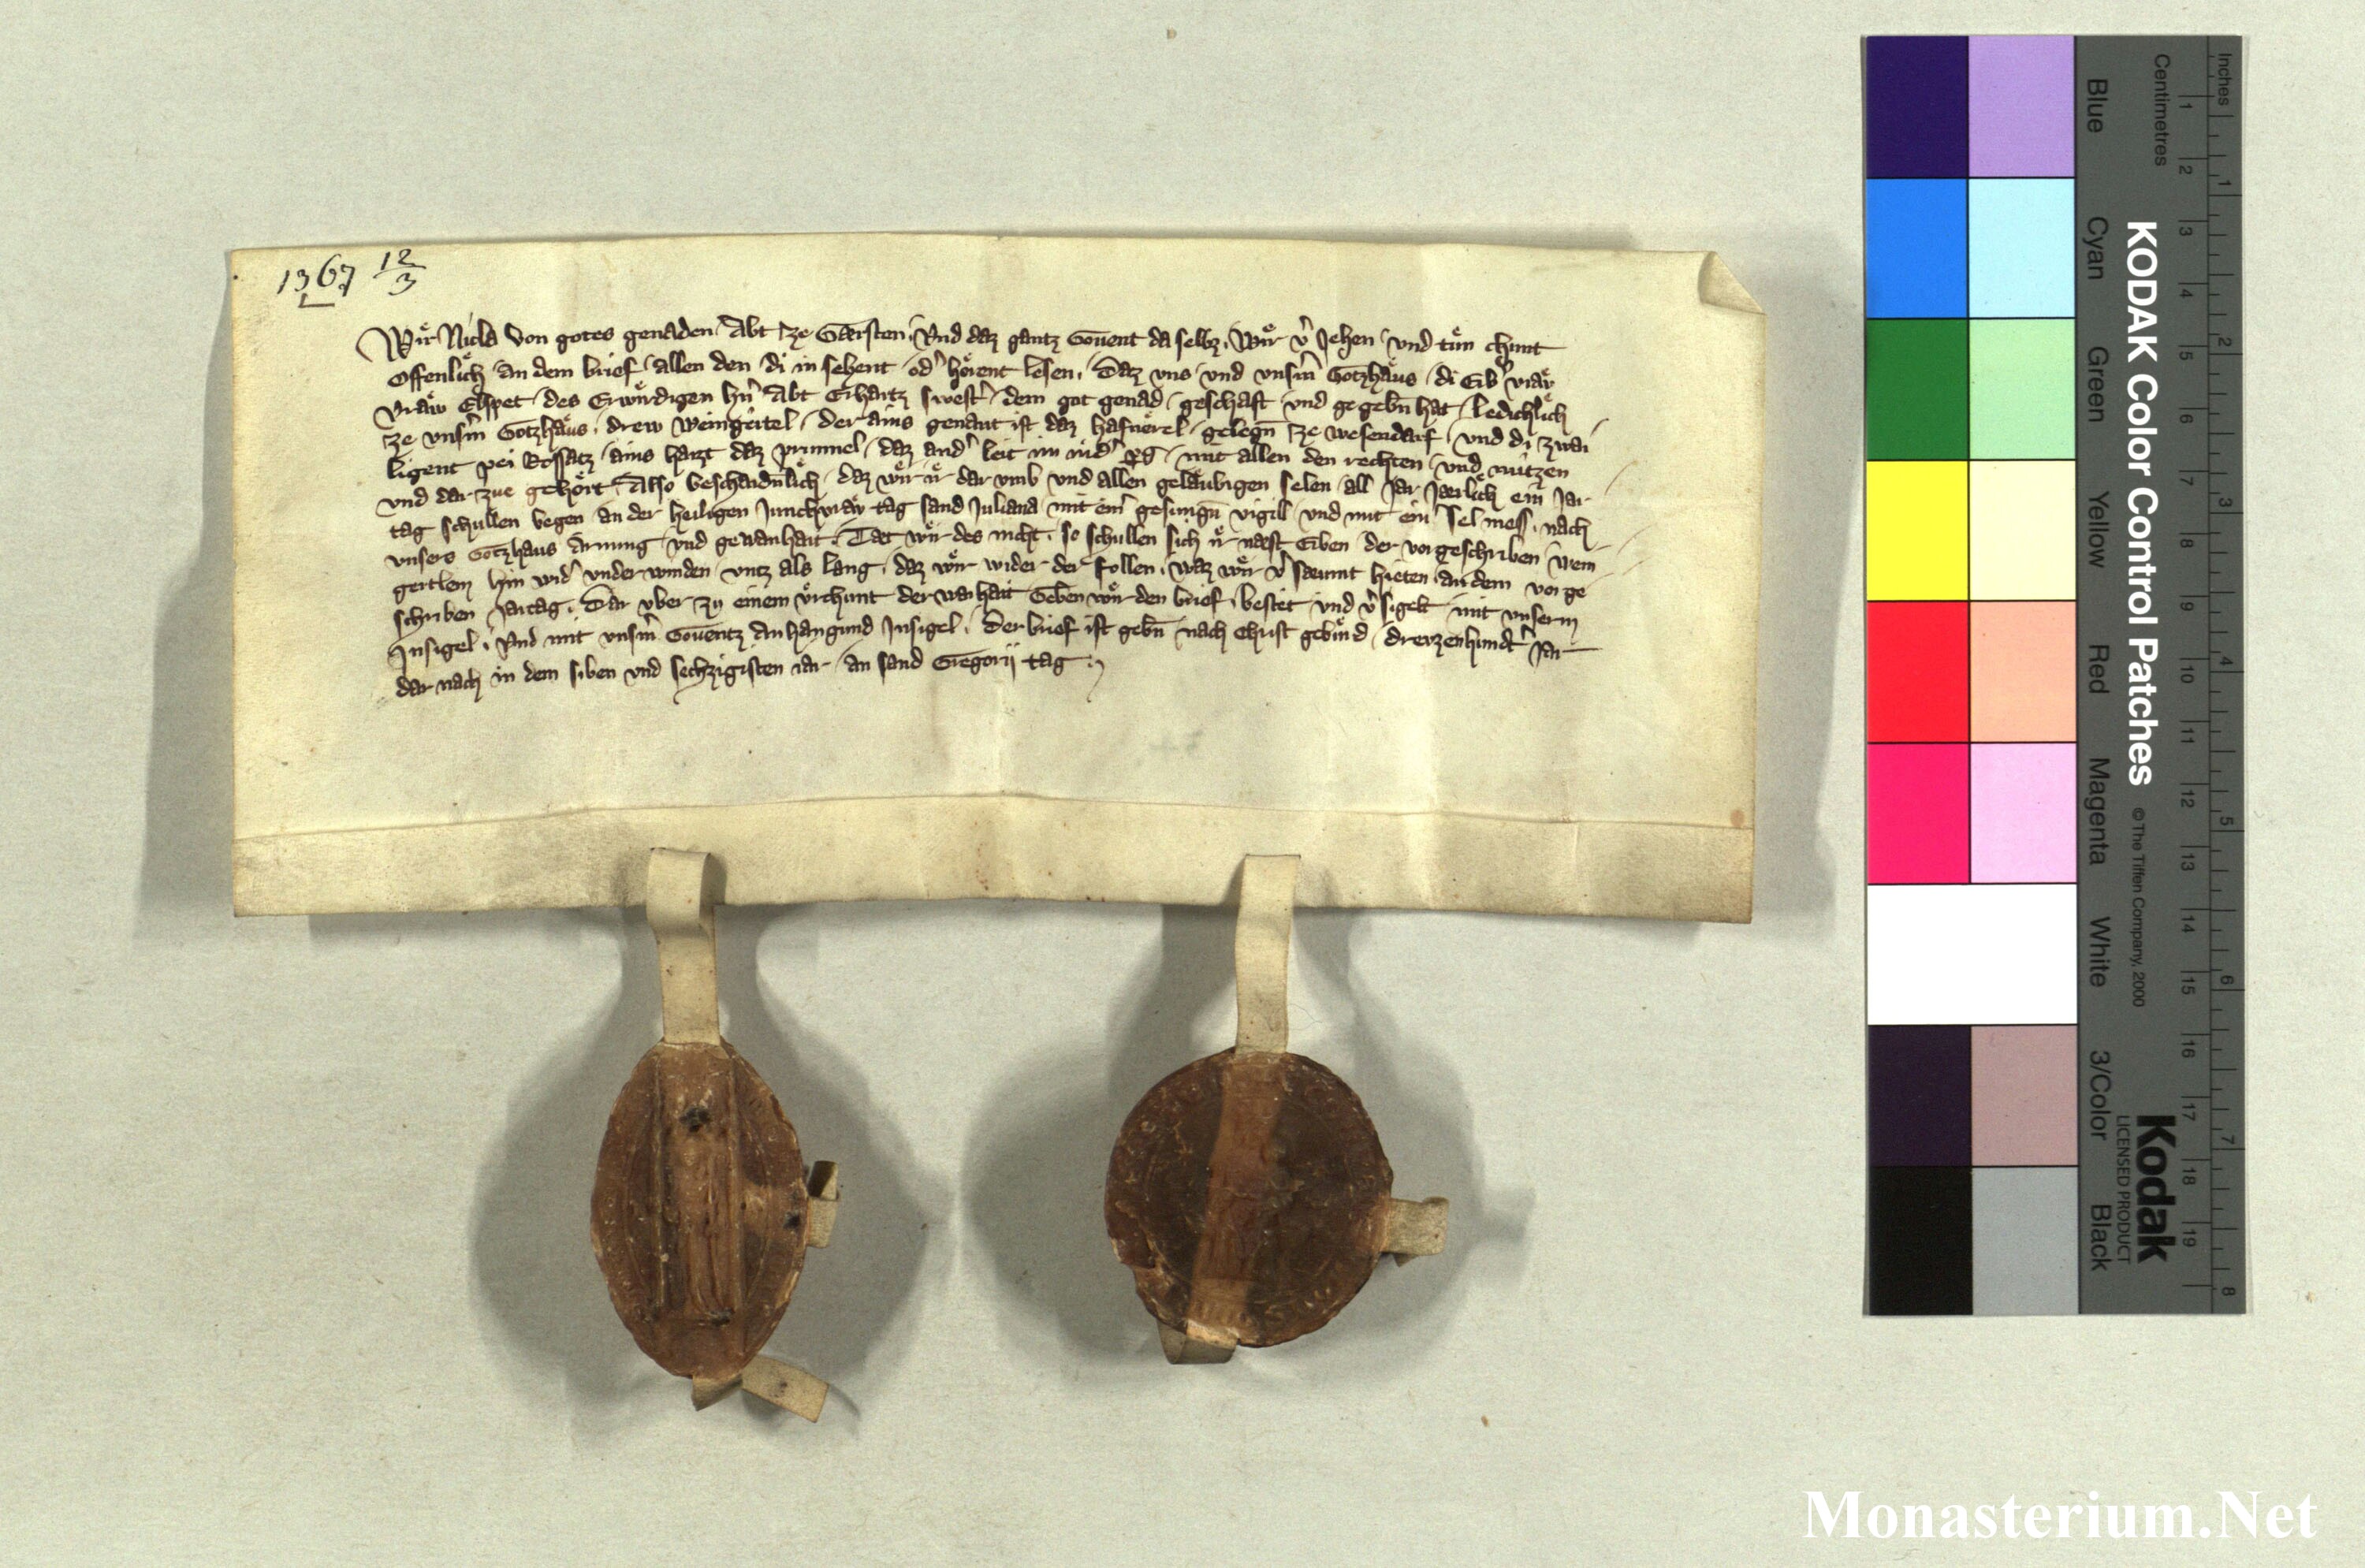 1367 12/3
Wir Nicla von gotes genaden Abt ze Gaersten, Vnd daz gantz Couent da selbz, Wir v'Jehen und tun chunt
Offenlich an dem brief allen den di in sehent od' hörent lesen, Daz uns und unsm̄ Gotzhaus di Erb'
vraw Elspet des Erwirdigen hn̄ Abt Erhartz swest' dem got genad geschaft und gegebn̄ hat ledichlich
ze unsm̄ Gotzhaus drew weingertel der ains genant ist daz hafnerel gelegn̄ ze wesendarf und di zwai
ligent pei Rossatz ains haizt daz prunnel daz and' leit im mit allen den rechten und nützen
und dar zue gehört Also beschaidn̄lich daz wir ir dar umb und allen gelaubigen selen all Jar Jaerlich ein Jar
tag schullen begen an der heiligen Junchvraw tag sand Juliana mit ein' gesungn̄ vigili und mit ein' sel mess nach
unsers Gotzhaus arnung und gewanhait Taet wir des nicht, so schullen sich ir naest Erben der vorgeschriben wein
gertlein hin wid' under winden untz als lang daz wir wider der follen, waz wir v'saumt hieten an dem vorge
schriben Jartag, Dar vber zu einem urchunt der warhait Geben wir den brief bestet und v'sigelt mit unserm
Insigel, Vnd mit unsm̄ Couentz anhangund Insigel, Der brief ist gebn̄ nach Christ gebürd drewzenhund't Jar
dar nach in dem siben und sechzigisten iar an sand Gregorij tag
KODAK Color Control Patches
© The Tiffen Company, 2000
Kodak
LICENSED PRODUCT
Blue Cyan Green Yellow Red Magenta White 3/Color Black
Centimetres 1 2 3 4 5 6 7 8 9 10 11 12 13 14 15 16 17 18 19
Inches 1 2 3 4 5 6 7 8
Monasterium.Net